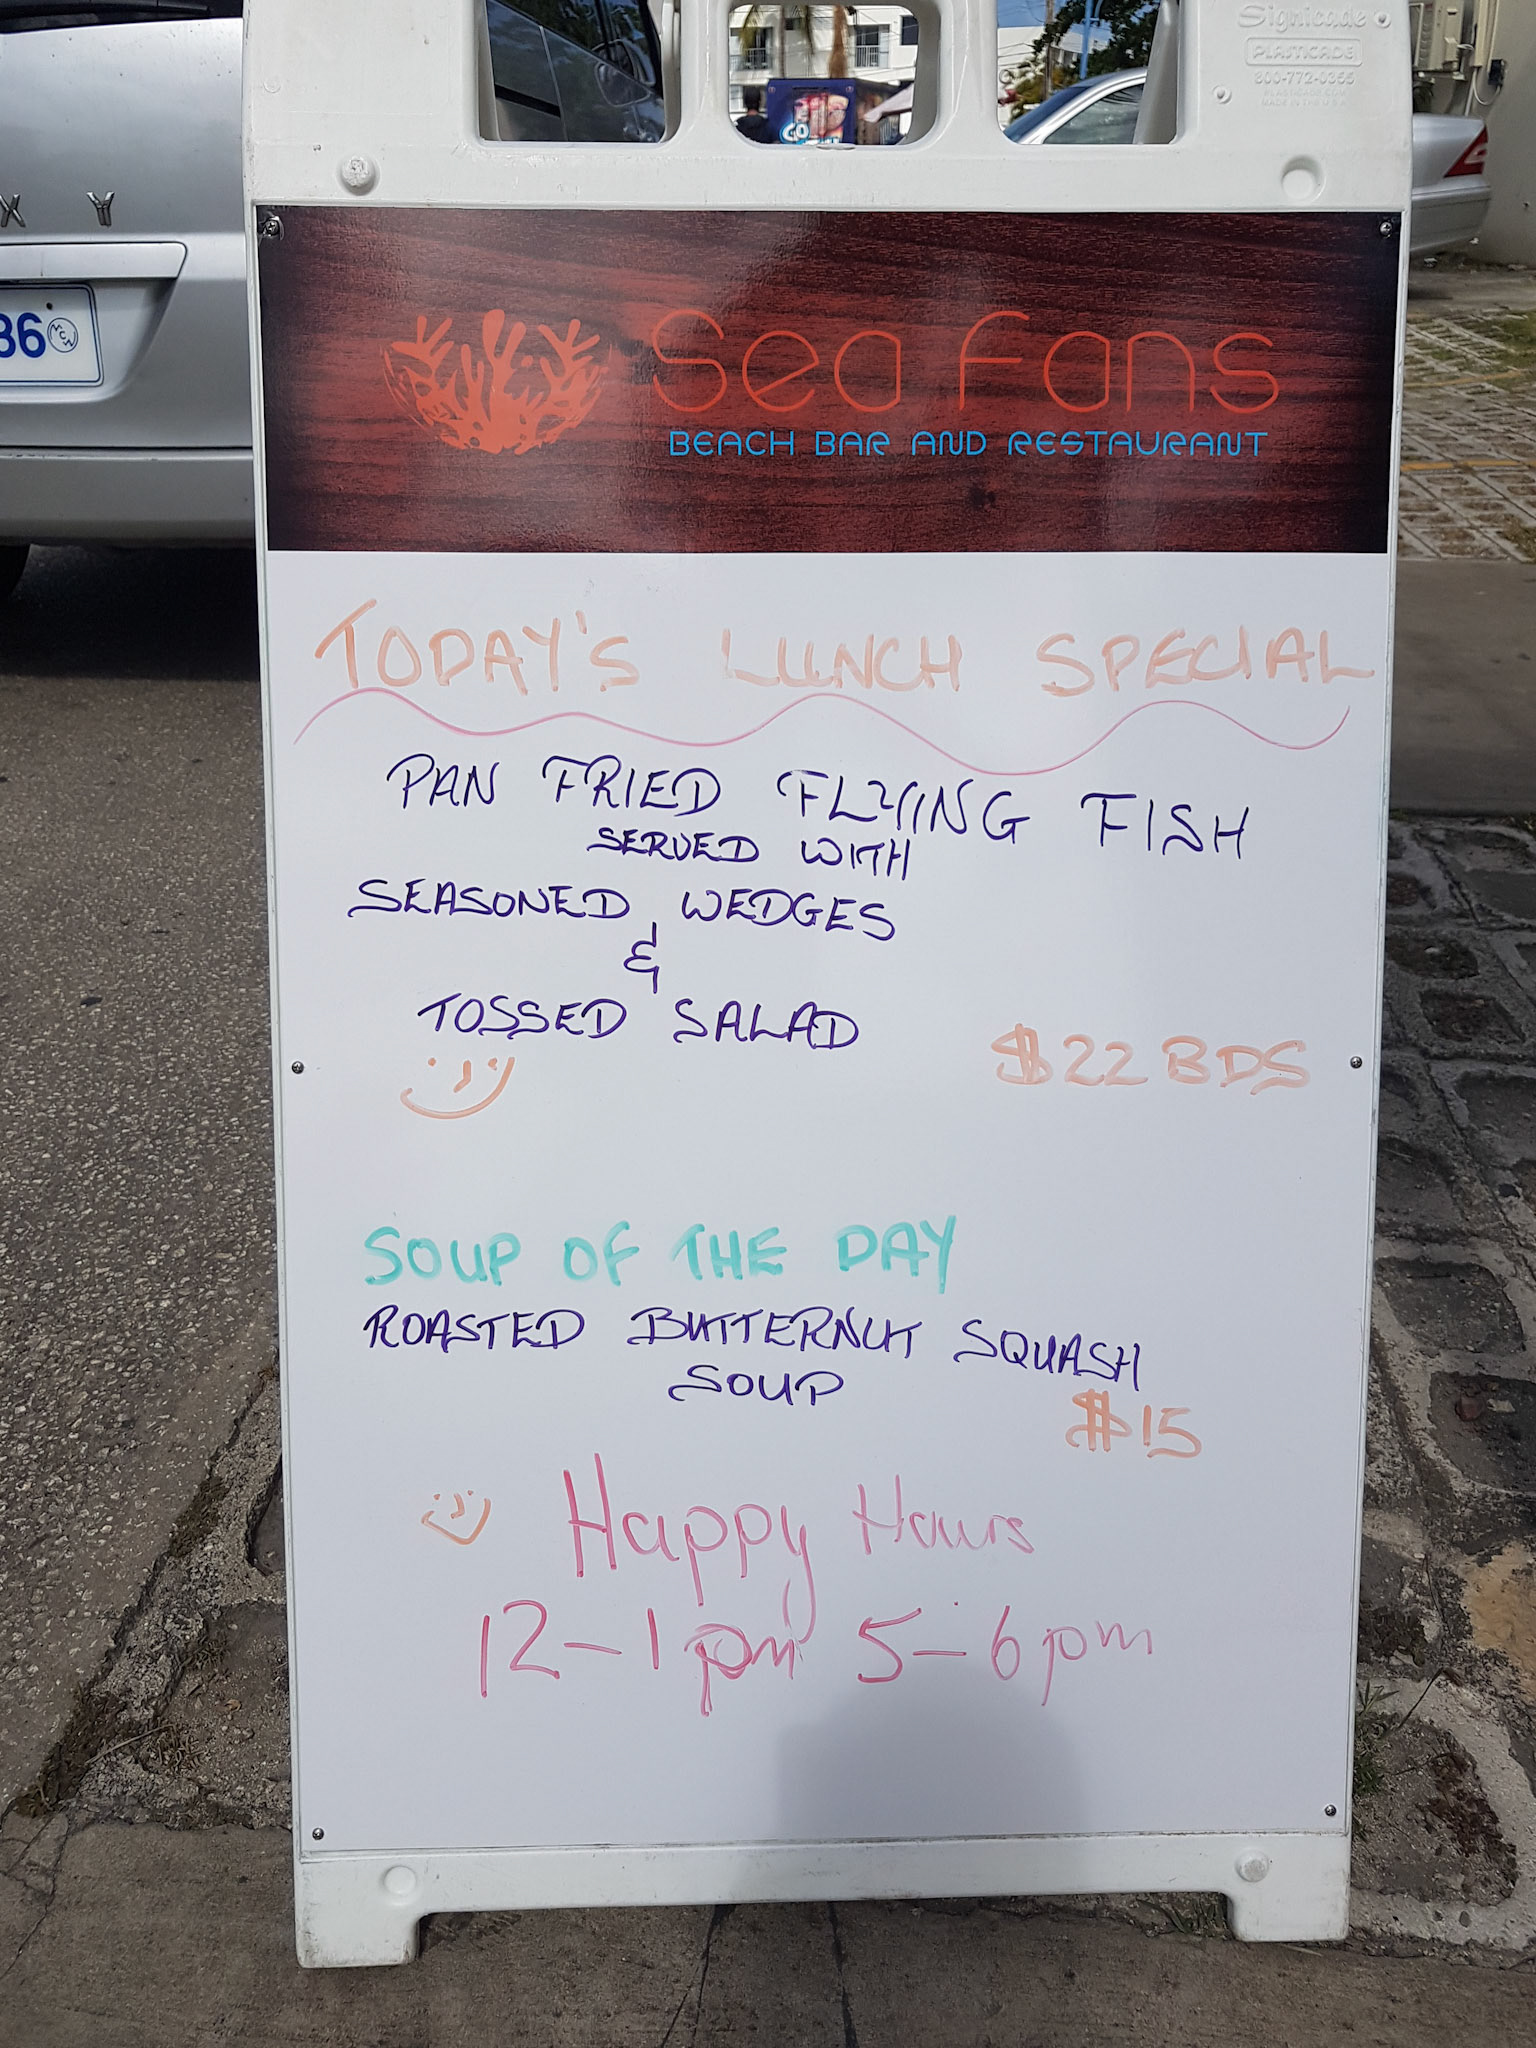 Signicade
PLASTICADE
800-772-0355
PLASTICADE.COM
MADE IN THE U.S.A.
GO
X Y
36
MCW
Sea Fans
BEACH BAR AND RESTAURANT
TODAY'S LUNCH SPECIAL
PAN FRIED FLYING FISH
SERVED WITH
SEASONED WEDGES
&
TOSSED SALAD
$22 BDS
SOUP OF THE DAY
ROASTED BUTTERNUT SQUASH
SOUP
$15
Happy Hours
12-1pm 5-6pm